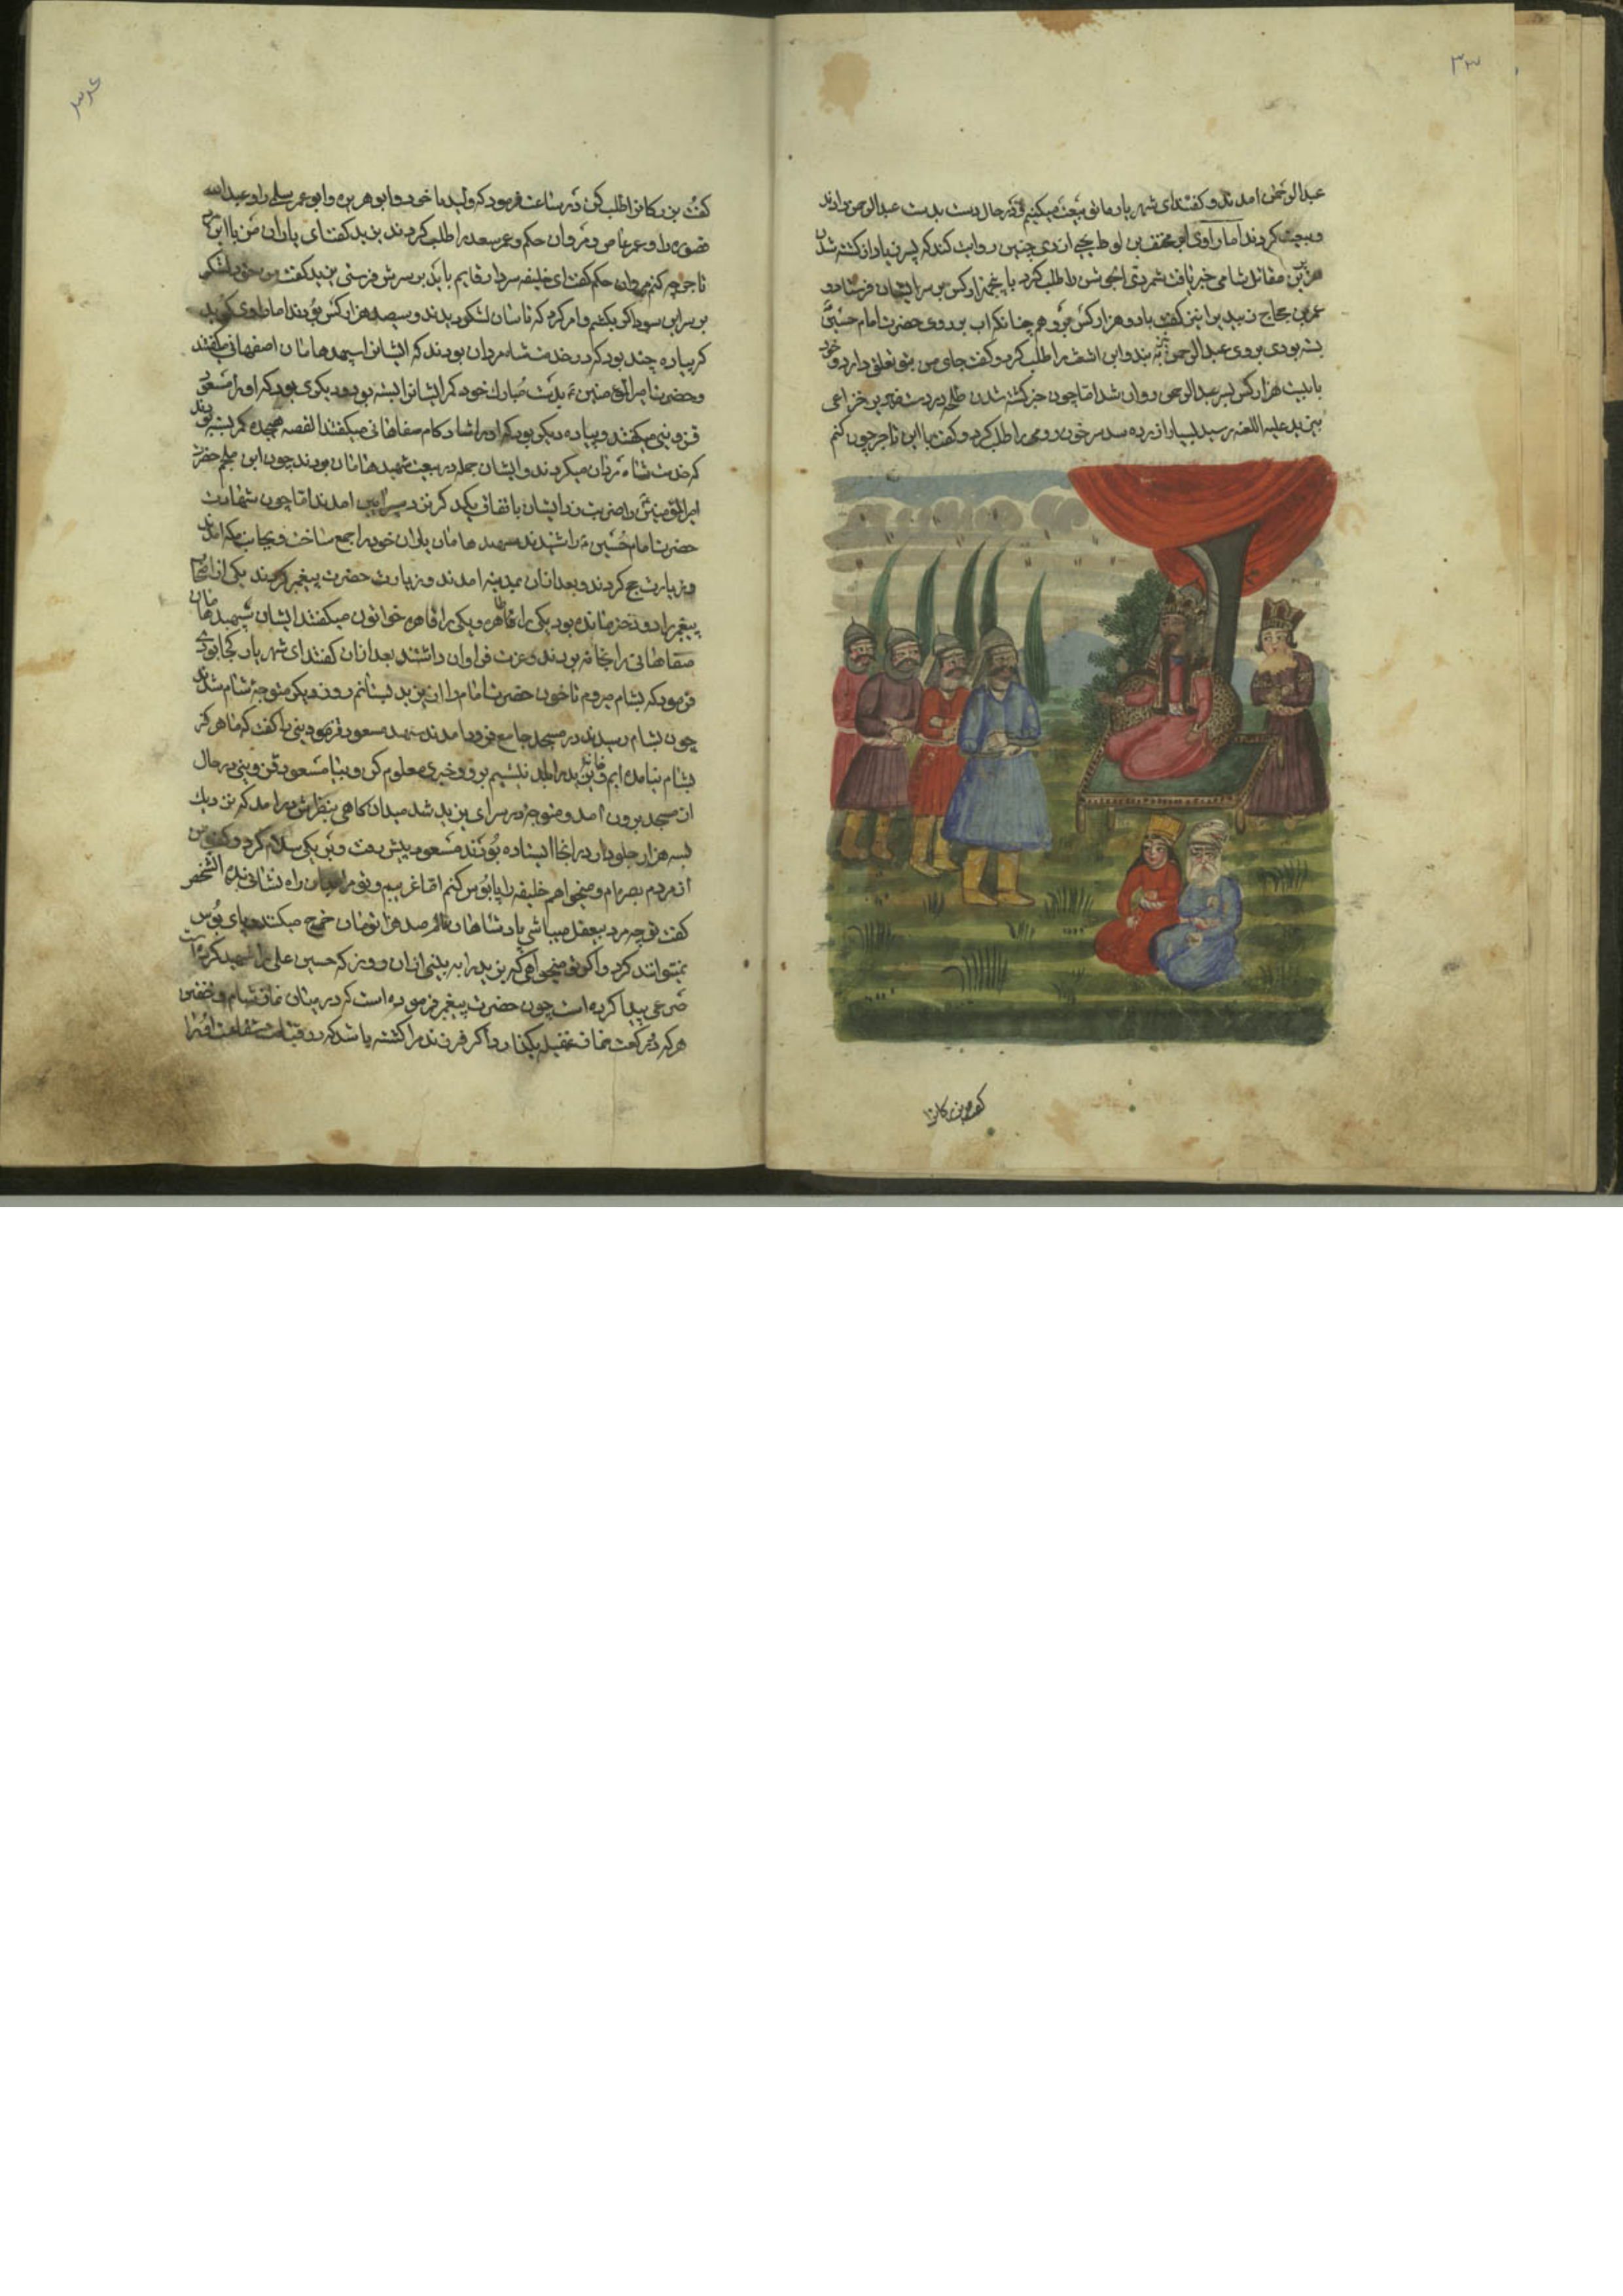 ۳۳
عبدالرحمن امدند و کفتند ای شهریار ما بتو بیعت میکنیم در حال دست بدست عبدالرحمن دادند
و بیعت کردند اما راوی ابو مخنف بن لوط یحیی ازدی چنین روایت کند که پسر زیاد از کشته شدن
مقاتل شامی خبر یافت شمر ذی الجوشن را طلب کرد با پنجهزار کس بر سر ایشان فرستاد و
عمر بن حجاج زبیدی را نیز کفت با دو هزار کس برو همچنانکه اب بر روی حضرت امام حسین
بسته بودی بروی عبدالرحمن به بند و ابن اشعث را طلب کرد و کفت جای من بتو تعلق دارد و خود
با بیست هزار کس بسر عبدالرحمن روان شد اما چون خبر کشته شدن طلحه بر دست خزاعی
بیزید علیه اللعنه رسید بسیار ازرده شد سرخون رومی را طلب کرد و کفت با این تاجر چون کنم
کفت بزرکانرا
کفت بزرکانرا طلب کن در ساعت فرمود که ولید با خود و ابو هریره و ابو عمر سلمی را و عبدالله
و عمر عاص و مروان حکم و عمر سعد را طلب کردند یزید کفت ای یاران من با این
تاجر چه کنم مروان حکم کفت ای خلیفه سردار قایم باید بر سرش فرستی یزید کفت من خود لشکر
بر سر این سوداکر بکشم و امر کرد که تا سان لشکر دیدند و سیصد هزار کس بودند اما راوی کوید
که پیاده چند بود که در خدمت شاه مردان بودند که ایشانرا اصفهانی میکفتند
و حضرت امیر المؤمنین بدست مبارک خود کمر ایشانرا بسته بود و دیکری بود که او را مسعود
قزوینی میکفتند و پیاده دیکر بود که او را شاد کام صفاهانی میکفتند القصه هجده کمر بسته بودند
که خدمت شاه مردان میکردند و ایشان جمله در بیعت بودند چون ابن ملجم حضرت
امیر المؤمنین را ضربت زد ایشان باتفاق یکدیکر امدند اما چون شهادت
حضرت امام حسین را شنیدند یاران خود را جمع ساخت و بجانب مکه امدند
و زیارت حج کردند و بعد ازان بمدینه امدند و زیارت حضرت پیغمبر کردند یکی از اصحاب
پیغمبر را دو دختر مانده بود یکی را و یکی را خواتون میکفتند ایشان
صفاهانی را بخانه بردند و عزت فراوان داشتند بعد ازان کفتند ای شهریار کجا بودی
فرمود که بشام میروم تا خون حضرت امام را از یزید بستانم روز دیکر متوجه شام شدند
چون بشام رسیدند در مسجد جامع فرود امدند مسعود قزوینی را کفت که ما هرکز
بشام نیامده ایم برو و خبری معلوم کن و بیا مسعود قزوینی در حال
از مسجد برون امد و متوجه در سرای یزید شد میدان کاهی بنظرش درامد که نزدیک
بسه هزار جلودار در انجا ایستاده بودند مسعود پیش رفت و بر یکی سلام کرد و کفت من
از مردم بصره ام و میخواهم خلیفه را پابوس کنم اما غریبم و تو مرا راه نشانی بده انشخص
کفت تو چه مرد بیعقل میباشی پادشاهان صد هزار تومان خرج میکنند و پای بوس
نمیتوانند کرد و اکنون تو میخواهی که یزید را به بینی ازان روز که حسین علی را شهید کرده است
صرعی پیدا کرده است چون حضرت پیغمبر فرموده است که در میان نماز شام و خفتن
هرکه دو رکعت نماز بکذارد اکر فرزند مرا کشته باشد که روز قیامت شفاعت او را